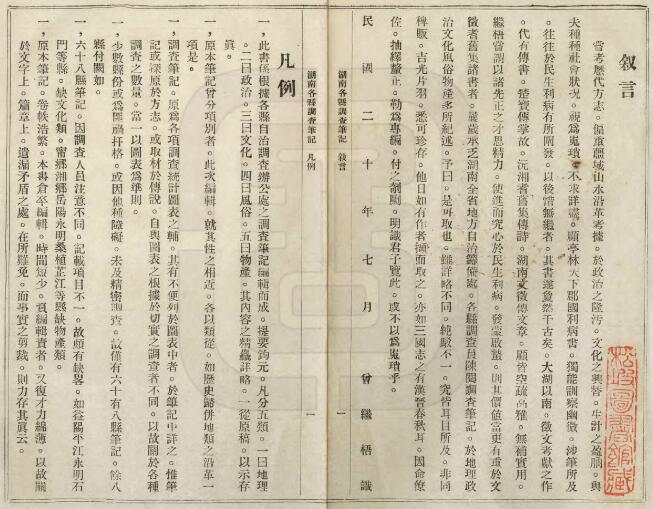 叙言
嘗考歷代方志。偏重疆域山水沿革考據。於政治之隆汚。文化之興替。生計之盈朒。與
夫種種社會狀況。視為鬼瑣。不求詳盡。顧亭林天下郡國利病書。獨能訓察幽微。涉筆所及
。往往於民生利病有所闡發。以後嘗無繼者。其書遂敻然千古矣。大湖以南。徵文考獻之作
。代有傳書。楚寶傳掌故。沅湘耆舊集傳詩。湖南文徵傳文章。顧皆空疏高雅。無補實用。
繼梧嘗謂以諸先正之才思精力。使進而究心於民生利病。發蒙啟蟄。則其價值當更有重於文
徵耆舊集諸書者。曩歲承乏湖南全省地方自治籌備處。各縣調查員陳閱調查筆記。於地理政
治文化風俗物產多所紀述。予曰。是可取也。雖詳略不同。純駁不一。究皆耳目所及。非同
稗販。吉光片羽。悉可珍存。他日如有作者擴而取之。亦如三國志之有漢晉春秋耳。因命僚
佐。抽繹釐正。勒為專編。付之剞劂。明識君子覽此。或不以為鬼瑣乎。
民國二十年七月 曾繼梧識
湖南各縣調查筆記 叙言
一
湖南各縣調查筆記 凡例
一
凡例
一，此書係根據各縣自治調查辦公處之調查筆記編輯而成。提要鈎元。凡分五類。一曰地理
。二曰政治。三曰文化。四曰風俗。五曰物產。其內容之精蟲詳略。一從原稿。以示存
眞。
一，原本筆記曾分項別者。此次編輯。就其性之相近。各以類從。如歷史歸併地類之沿革一
項是。
一，調查筆記。原為各項調查統計圖表之輔。其有不便列於圖表中者。於筆記中詳之。惟筆
記或探原於方志。或取材於傳說。自與圖表之根據於切實之調查者不同。以故關於各種
調查之數量。當一以圖表為準則。
一，少數縣份或為匪禍扞格。或因他種障礙。未及精密調查。故僅有六十有八縣筆記。餘八
縣付闕如。
一，六十八縣筆記。因調查人員注意不同。記載項目不一。故頗有缺畧。如益陽平江永明石
門等縣。缺文化類。甯鄉湘鄉岳陽永明桑植芷江等縣缺物產類。
一，原本筆記。卷帙浩繁。本書倉卒編輯。時間短少。實編輯責者。又復才力綿薄。以故關
於文字上。篇章上。遺漏矛盾之處。在所難免。而事實之剪裁。則力存其眞云。